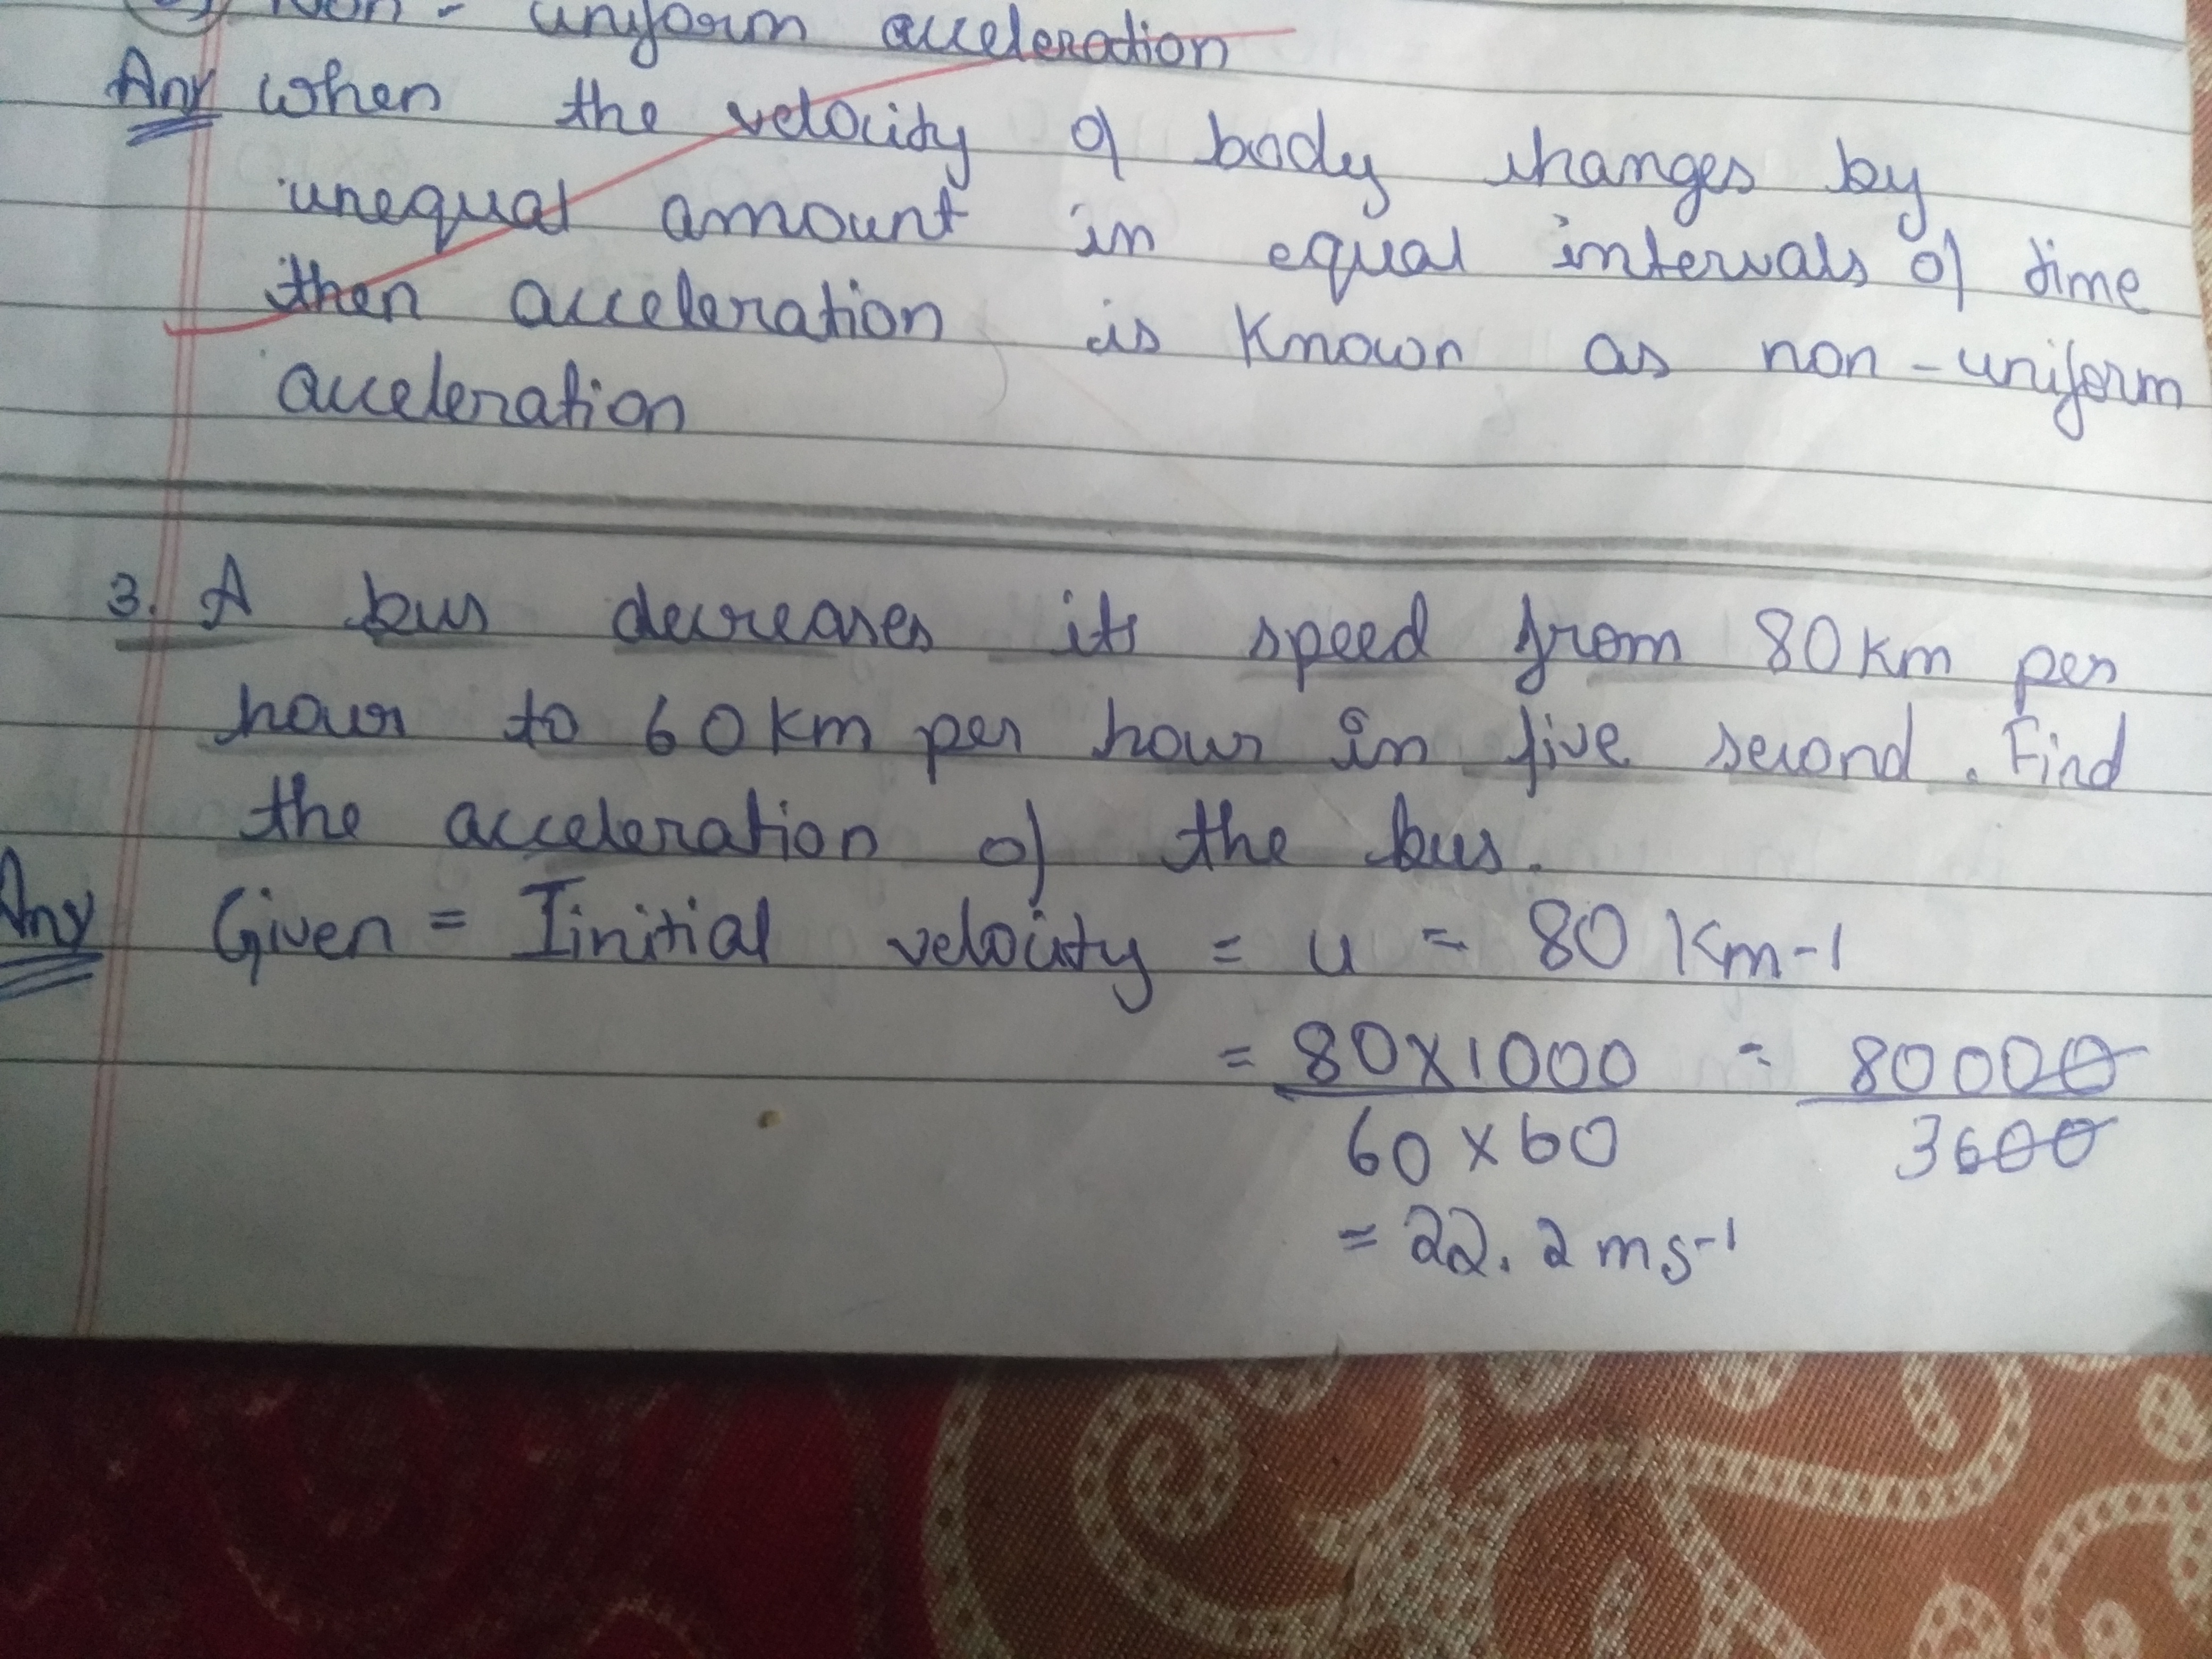 Non - uniform acceleration
Ans When the velocity of body changes by
unequal amount in equal intervals of time
then acceleration is known as non-uniform
acceleration
3. A bus decreases its speed from 80 km per
hour to 60 km per hour in five second. Find
the acceleration of the bus.
Ans Given = Iinitial velocity = u = 80 Km-1
= 80x1000 / 60x60 = 80000 / 3600
= 22.2 ms-1